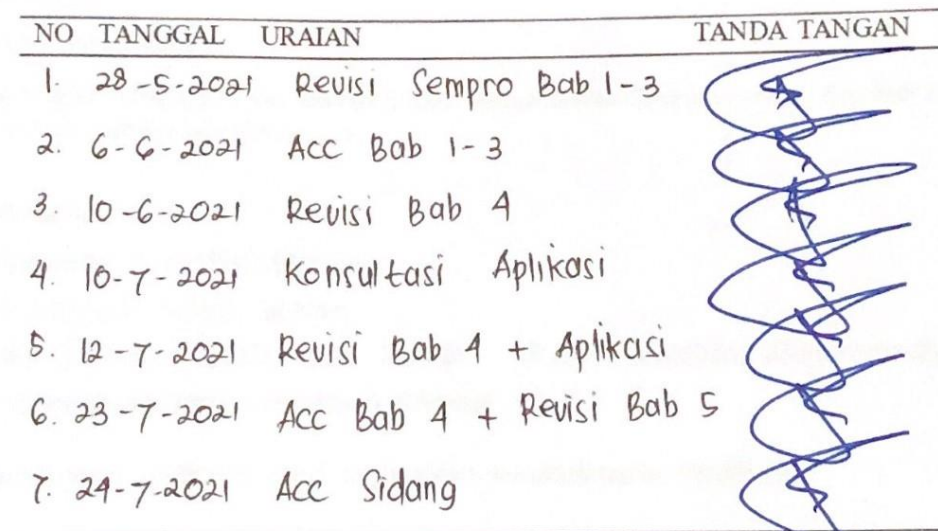 NO TANGGAL URAIAN TANDA TANGAN
1. 28-5-2021 Revisi Sempro Bab 1-3
2. 6-6-2021 Acc Bab 1-3
3. 10-6-2021 Revisi Bab 4
4. 10-7-2021 Konsultasi Aplikasi
5 12-7-2021 Revisi Bab 4 + Aplikasi
6. 23-7-2021 Acc Bab 4 + Revisi Bab 5
7. 24-7-2021 Acc Sidang